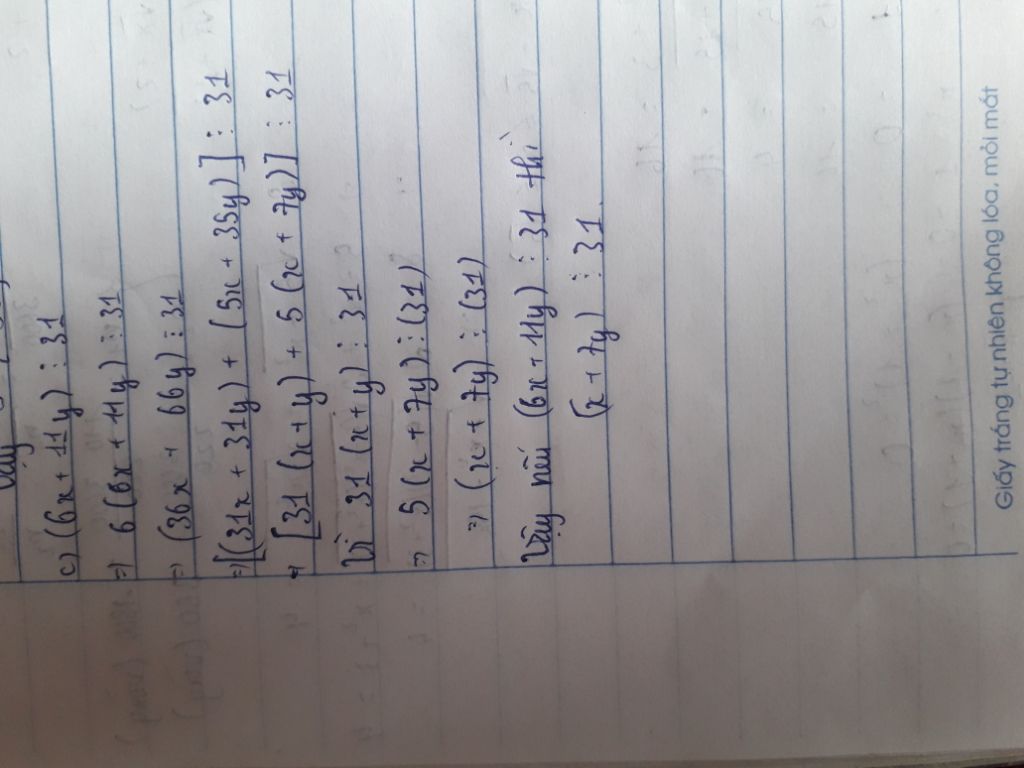 c) (6x + 11y) ⋮ 31
=> 6 (6x + 11y) ⋮ 31
=> (36x + 66y) ⋮ 31
=> [(31x + 31y) + (5x + 35y)] ⋮ 31
=> [31 (x + y) + 5 (x + 7y)] ⋮ 31
Vì 31 (x + y) ⋮ 31
=> 5 (x + 7y) ⋮ (31)
=> (x + 7y) ⋮ (31)
Vậy nếu (6x + 11y) ⋮ 31 thì
(x + 7y) ⋮ 31.
Giấy trắng tự nhiên không lóa, mỏi mắt